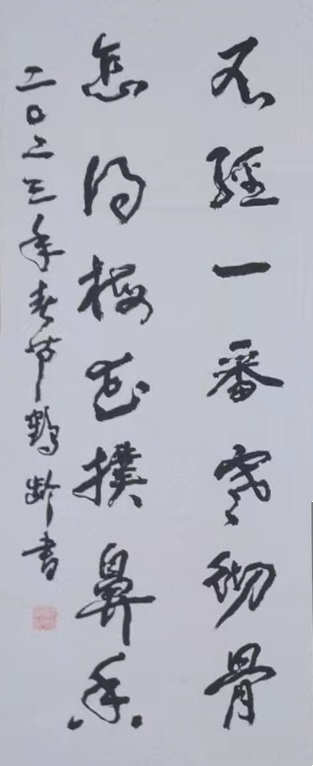 不經一番寒彻骨
怎得梅花撲鼻香
二〇二三年春节鶴齡書